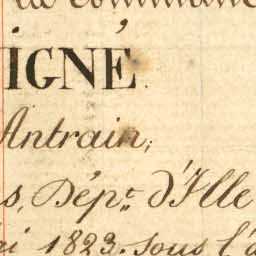 de commune
IGNÉ
Antrain,
s, Dép.t d'Ille
1823. sous l'a